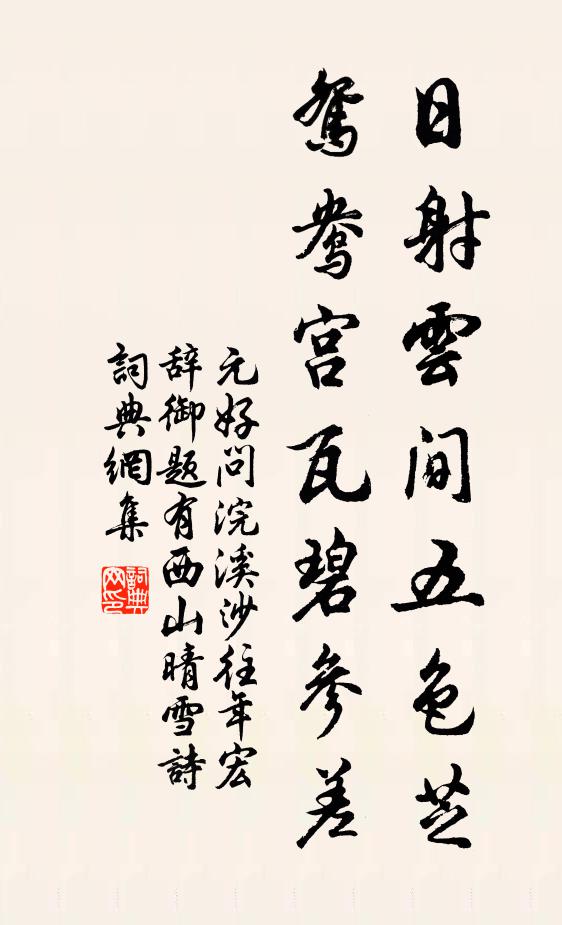 日射雲間五色芝
鴛鴦宮瓦碧參差
元好问浣溪沙往年宏
辞御题有西山晴雪詩
詞典網集
詞典
网印